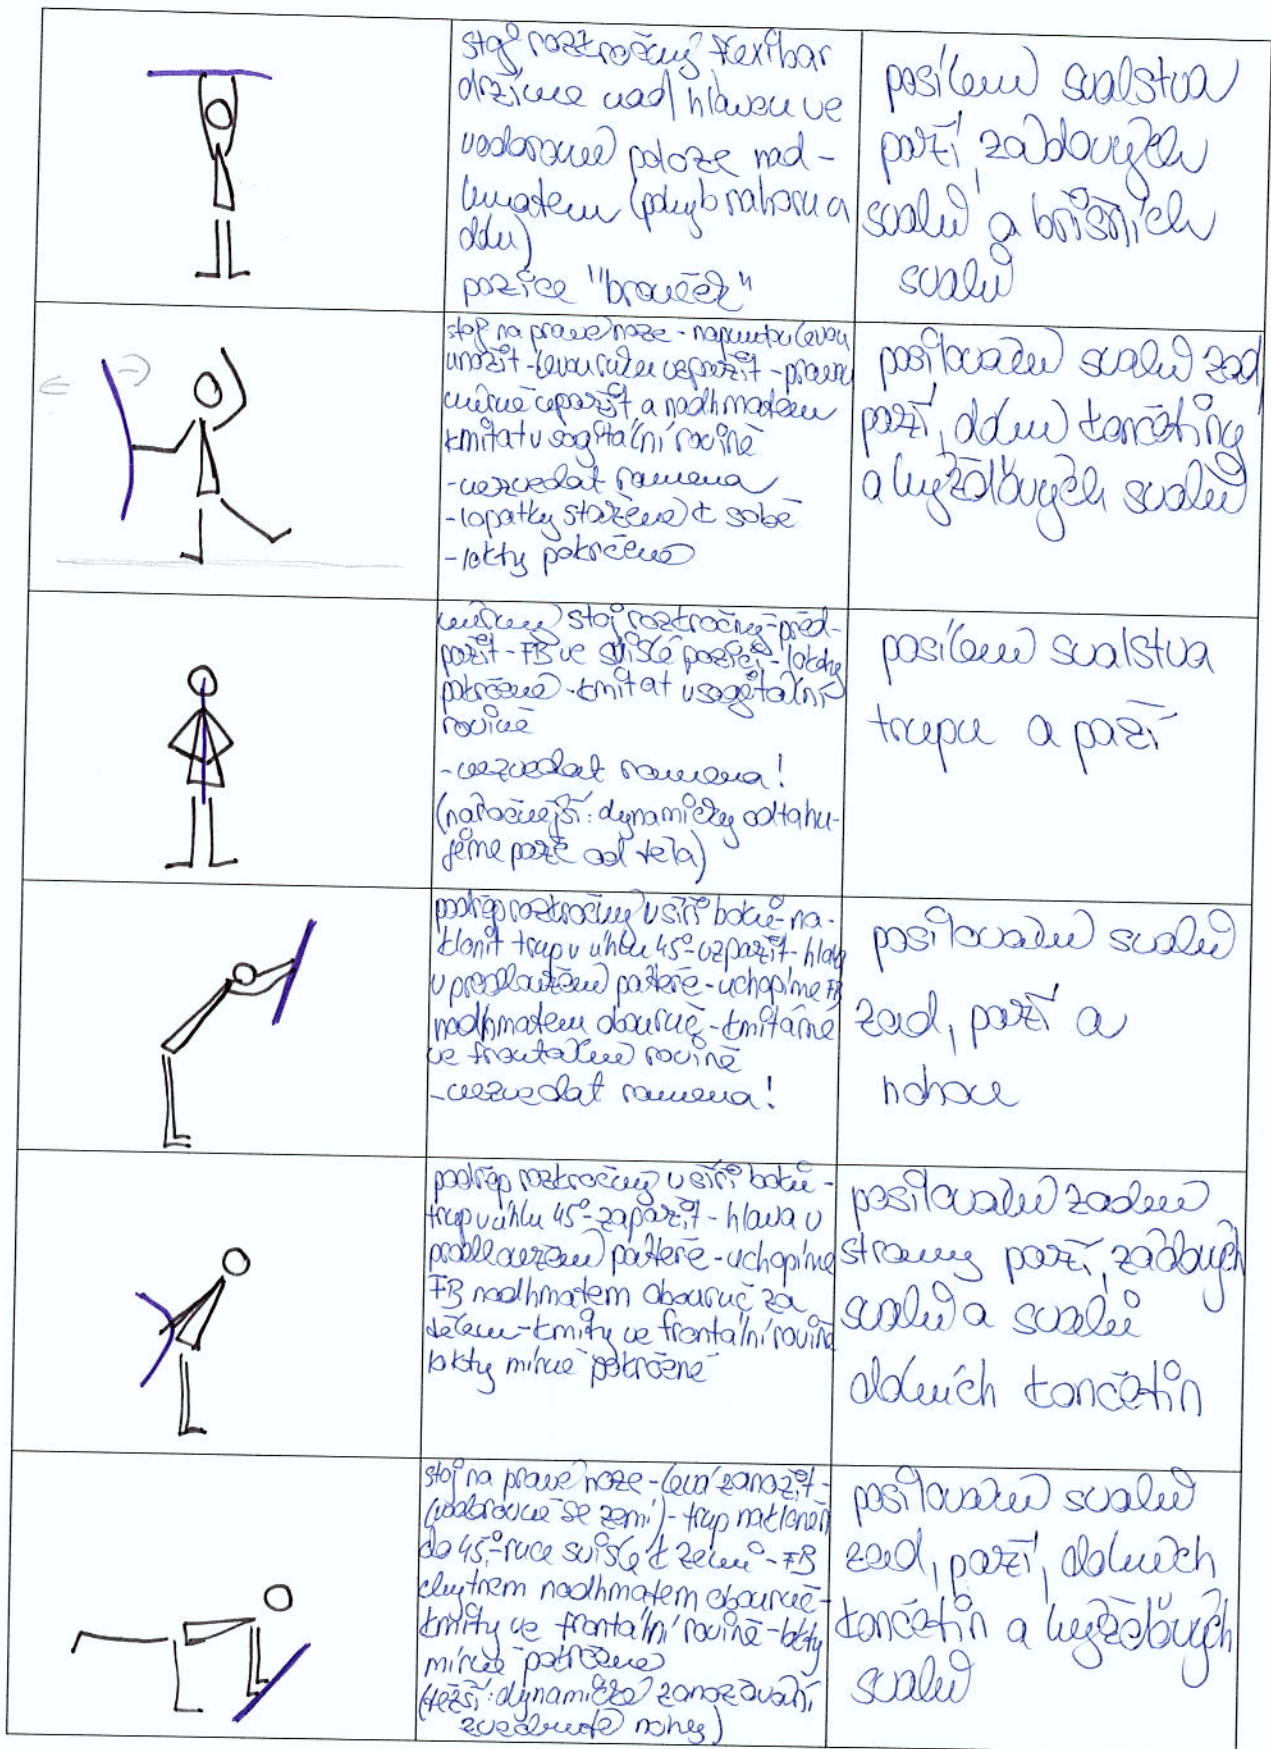 stoj rozkročný flexibar
držíme nad hlavou ve
vodorovné poloze nad-
hmatem (pohyb nahoru a
dolu)
pozice "brouček"
posílení svalstva
paží, zádových
svalů a břišních
svalů
stoj na pravé noze - napnutou levou
unožit - levou ruku vzpažit - pravou
mírně upažit a nadhmatem
kmitat v sagitální rovině
- nezvedat ramena
- lopatky stažené k sobě
- lokty pokrčené
posilování svalů zad
paží, dolní končetiny
a hýžďových svalů
mírný stoj rozkročný - před-
pažit - FB ve svislé pozici - lokty
pokrčené - kmitat v sagitální
rovině
- nezvedat ramena!
(náročnější: dynamicky odtahu-
jeme paže od těla)
posílení svalstva
trupu a paží
podřep rozkročný v šíři boků - na-
klonit trup v úhlu 45° - vzpažit - hlava
v prodloužení páteře - uchopíme FB
nadhmatem obouruč - kmitáme
ve frontální rovině
- nezvedat ramena!
posilování svalů
zad, paží a
nohou
podřep rozkročný v šíři boků -
trup v úhlu 45° - zapažit - hlava v
prodloužení páteře - uchopíme
FB nadhmatem obouruč za
tělem - kmity ve frontální rovině
lokty mírně pokrčené
posilování zadní
strany paží, zádových
svalů a svalů
dolních končetin
stoj na pravé noze - levá zanožit -
(vodorovně se zemí) - trup nakloněn
do 45° - ruce svisle k zemi - FB
chytnem nadhmatem obouruč -
kmity ve frontální rovině - lokty
mírně pokrčené
(těžší: dynamické zanožování
zvednuté nohy)
posilování svalů
zad, paží, dolních
končetin a hýžďových
svalů